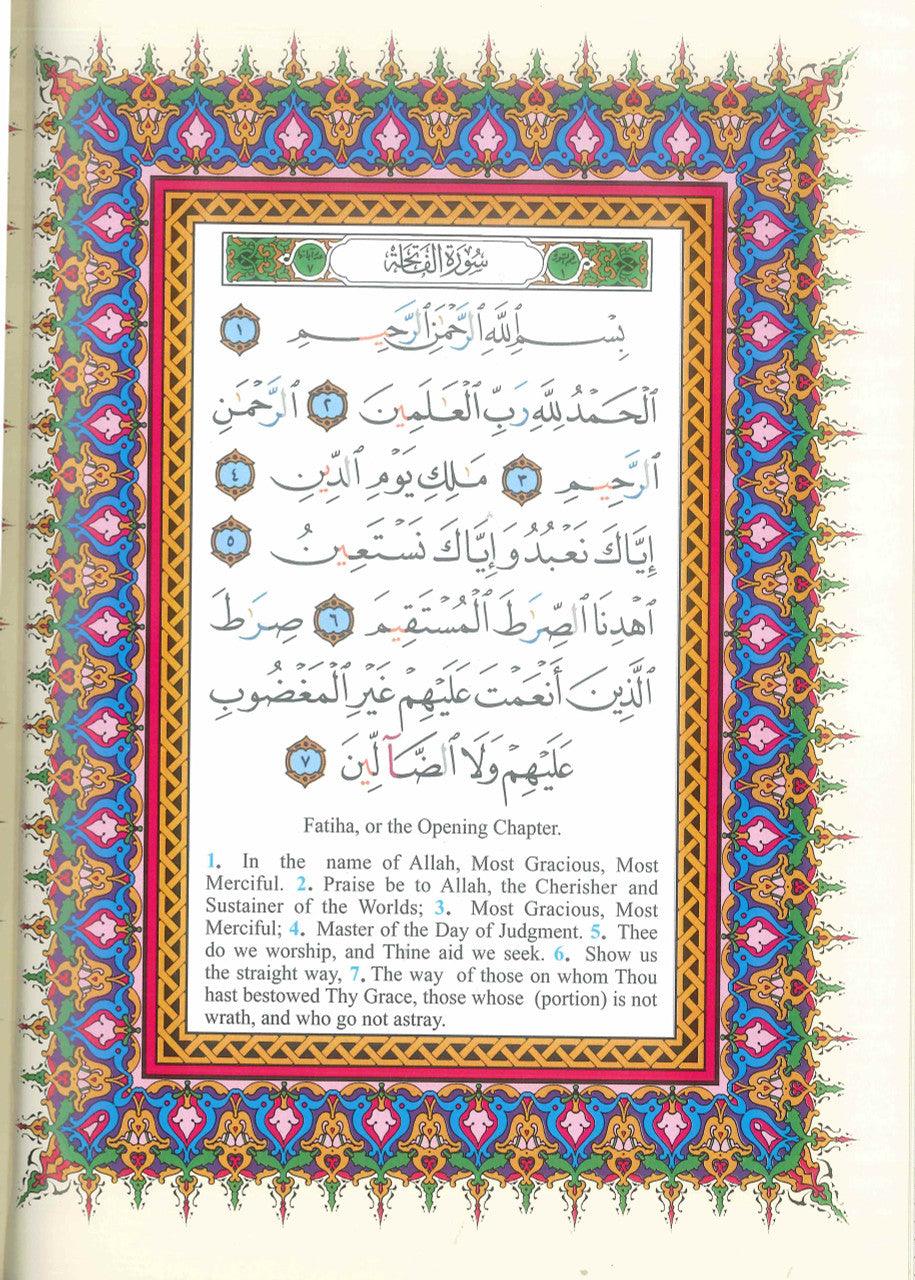 سُورَةُ الْفَاتِحَةِ
بِسْمِ ٱللَّهِ ٱلرَّحْمَٰنِ ٱلرَّحِيمِ ١
ٱلْحَمْدُ لِلَّهِ رَبِّ ٱلْعَٰلَمِينَ ٢ ٱلرَّحْمَٰنِ
ٱلرَّحِيمِ ٣ مَٰلِكِ يَوْمِ ٱلدِّينِ ٤
إِيَّاكَ نَعْبُدُ وَإِيَّاكَ نَسْتَعِينُ ٥
ٱهْدِنَا ٱلصِّرَٰطَ ٱلْمُسْتَقِيمَ ٦ صِرَٰطَ
ٱلَّذِينَ أَنْعَمْتَ عَلَيْهِمْ غَيْرِ ٱلْمَغْضُوبِ
عَلَيْهِمْ وَلَا ٱلضَّآلِّينَ ٧
Fatiha, or the Opening Chapter.
1. In the name of Allah, Most Gracious, Most
Merciful. 2. Praise be to Allah, the Cherisher and
Sustainer of the Worlds; 3. Most Gracious, Most
Merciful; 4. Master of the Day of Judgment. 5. Thee
do we worship, and Thine aid we seek. 6. Show us
the straight way, 7. The way of those on whom Thou
hast bestowed Thy Grace, those whose (portion) is not
wrath, and who go not astray.